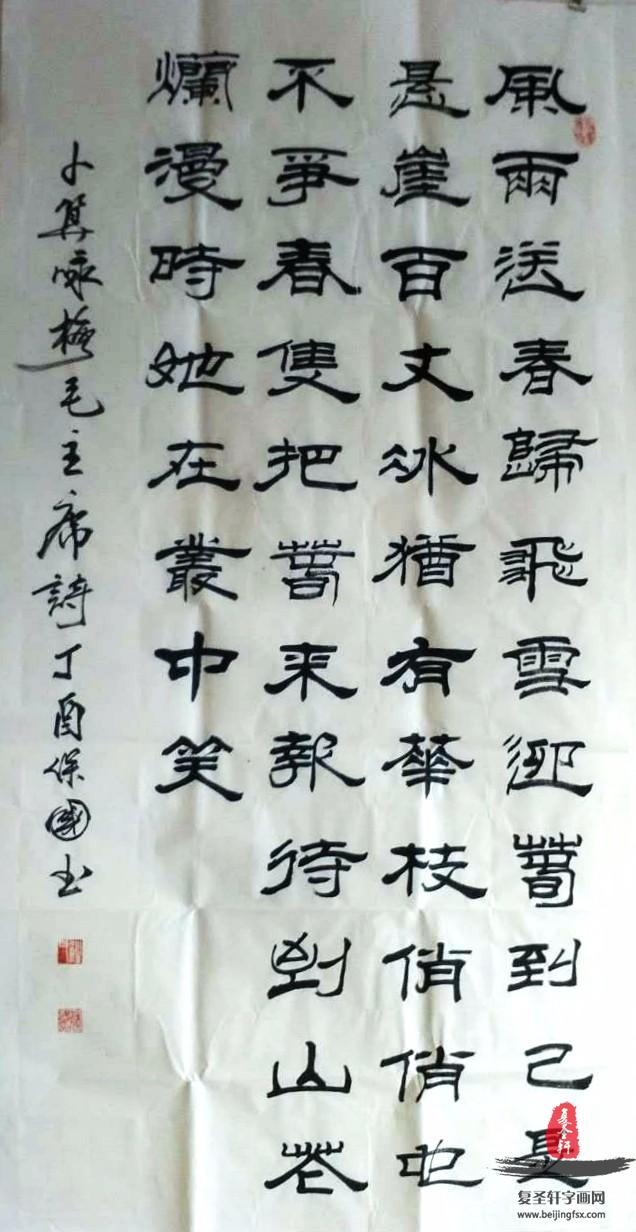 風雨送春歸飛雪迎萅到己是
悬崖百丈冰猶有華枝俏俏也
不爭春隻把萅来報待到山花
爛漫時她在叢中笑
卜算咏梅毛主席詩丁酉保國书
复圣轩
复圣轩字画网
www.beijingfsx.com